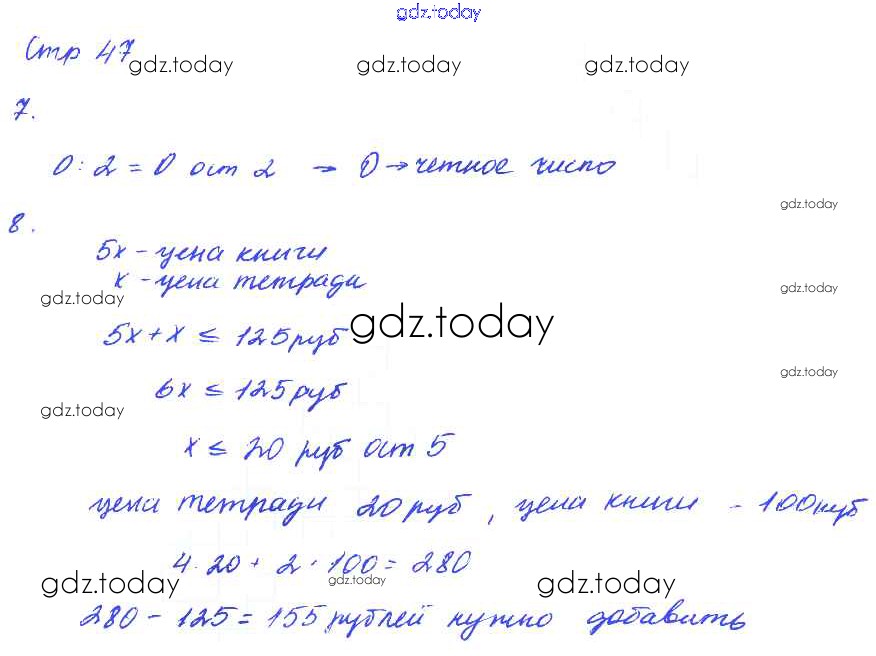 gdz.today
Стр 47
gdz.today gdz.today gdz.today
7.
0 : 2 = 0 ост 2 → 0 → четное число
gdz.today
8.
5x - цена книги
x - цена тетради
gdz.today gdz.today
5x + x ≤ 125 руб
gdz.today
gdz.today
6x ≤ 125 руб
gdz.today
x ≤ 20 руб ост 5
цена тетради 20 руб, цена книги - 100 руб
4 · 20 + 2 · 100 = 280
gdz.today gdz.today gdz.today
280 - 125 = 155 рублей нужно добавить